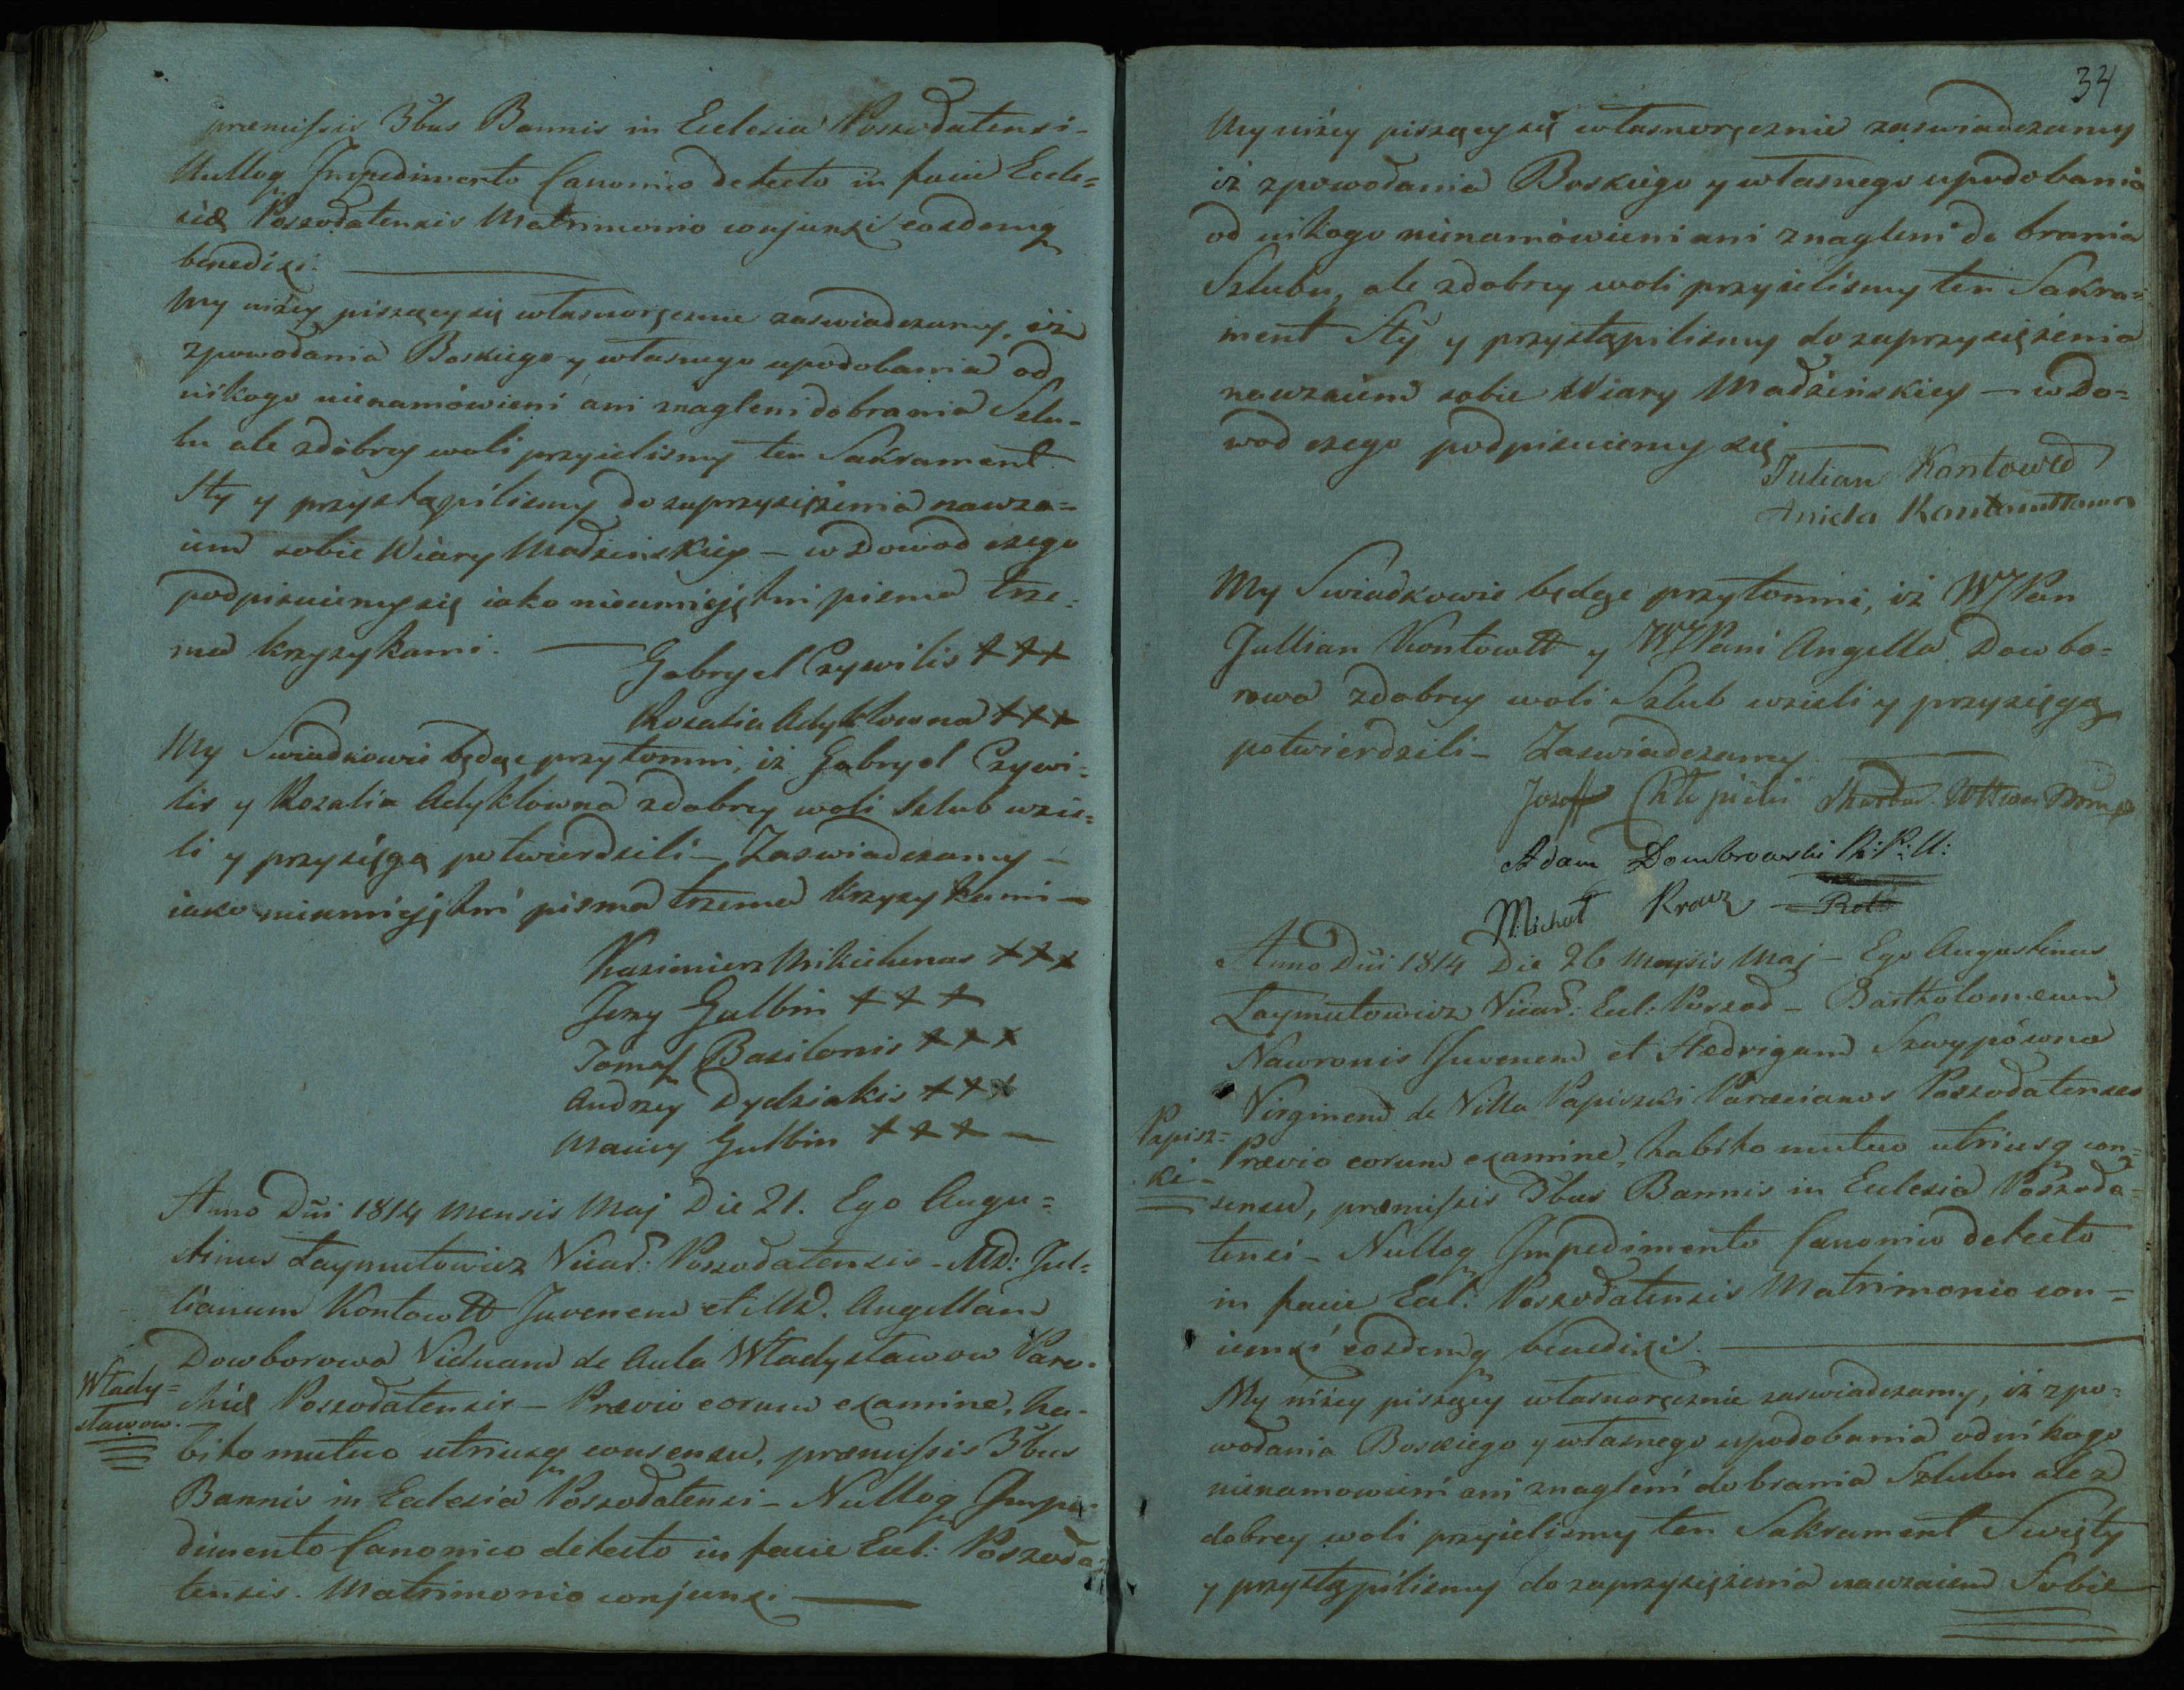 præmissis 3bus Bannis in Eclesia Poszodatensi -
Nulloq Impedimento Canonico detecto in facie Ecle=
siæ Poszodatensis Matrimonio conjunxi eosdemq
benedixi.
My niżey piszący się własnoręcznie zaswiadczamy, iż
zpowodania Boskiego y własnego upodobania od
nikogo nienamówieni ani znagleni do brania Szlu-
bu ale zdobrey woli przyielismy ten Sakrament
Sty y przystąpilismy do zaprzysiężenia nawza=
iem sobie Wiary Madzenskiey - w Dowod czego
podpisuiemy się iako nieumieiętni pisma trze=
ma krzyzykami.
Gabryel Czywilis +++
Rozalia Adyklowna +++
My Swiadkowie będąc przytomni, iż Gabryel Czywi=
lis y Rozalia Adyklowna zdobrey woli Szlub wzie=
li y przysięgą potwierdzili - Zaswiadczamy -
iako nieumieiętni pisma trzema krzyzykami -
Kazimierz Mikichenas +++
Jerzy Gulbin +++
Tomasz Bazilonis +++
Andrzey Dydziakis +++
Maciey Gulbin +++ -
Anno Dni 1814 Mensis Maj Die 21. Ego Augu=
stinus Łaymutowicz Vicar: Poszodatensis - Md: Jul=
lianum Kontowtt Juvenem et Md. Angellam
Dowborowa Viduam de Aula Władysławow Paro-
Włady=
sławow.
chiæ Poszodatensis - Prævio eorum examine, ha-
bito mutuo utriusq consensu, præmissis 3bus
Bannis in Eclesia Poszodatensi - Nulloq Impe-
dimento Canonico detecto in facie Ecl: Poszoda=
tensis. Matrimonio conjunxi
34
My niżey piszący się własnoręcznie zaswiadczamy
iż zpowodania Boskiego y własnego upodobania
od nikogo nienamówieni ani znagleni do brania
Szlubu, ale zdobrey woli przyielismy ten Sakra=
ment Sty y przystąpilismy do zaprzysiężenia
nawzaiem sobie Wiary Madzenskiey - w Do=
wod czego podpisuiemy się
Julian Kontowtt
Aniela
My Swiadkowie będąc przytomni, iż WJPan
Jullian Kontowtt y WJPani Angella Dowbo=
rowa zdobrey woli Szlub wzieli y przysięgą
potwierdzili - Zaswiadczamy.
Jozeff
Adam Dombrowski
Michał
Anno Dni 1814 Die 26 Mensis Maj - Ego Augustinus
Łaymutowicz Vicar: Ecl: Poszod - Bartholomeum
Nawronis Juvenem et Hedvigam Szwypówna
Virginem de Villa Papiszki Paræcianos Poszodatenses
Papisz=
ki -
Prævio eorum examine, habito mutuo utriusq con=
sensu, præmissis 3bus Bannis in Eclesia Poszoda=
tensi - Nulloq Impedimento Canonico detecto
in facie Ecl: Poszodatensis Matrimonio con=
iunxi eosdemq benedixi.
My niżey piszący własnoręcznie zaswiadczamy, iż zpo=
wodania Boskiego y własnego upodobania od nikogo
nienamowieni ani znagleni do brania Szlubu ale z
dobrey woli przyielismy ten Sakrament Swięty
y przystąpilismy do zaprzysiężenia nawzaiem Sobie